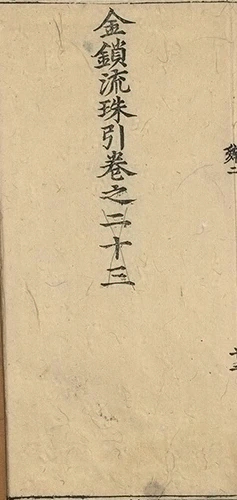 金鎖流珠引卷之二十三